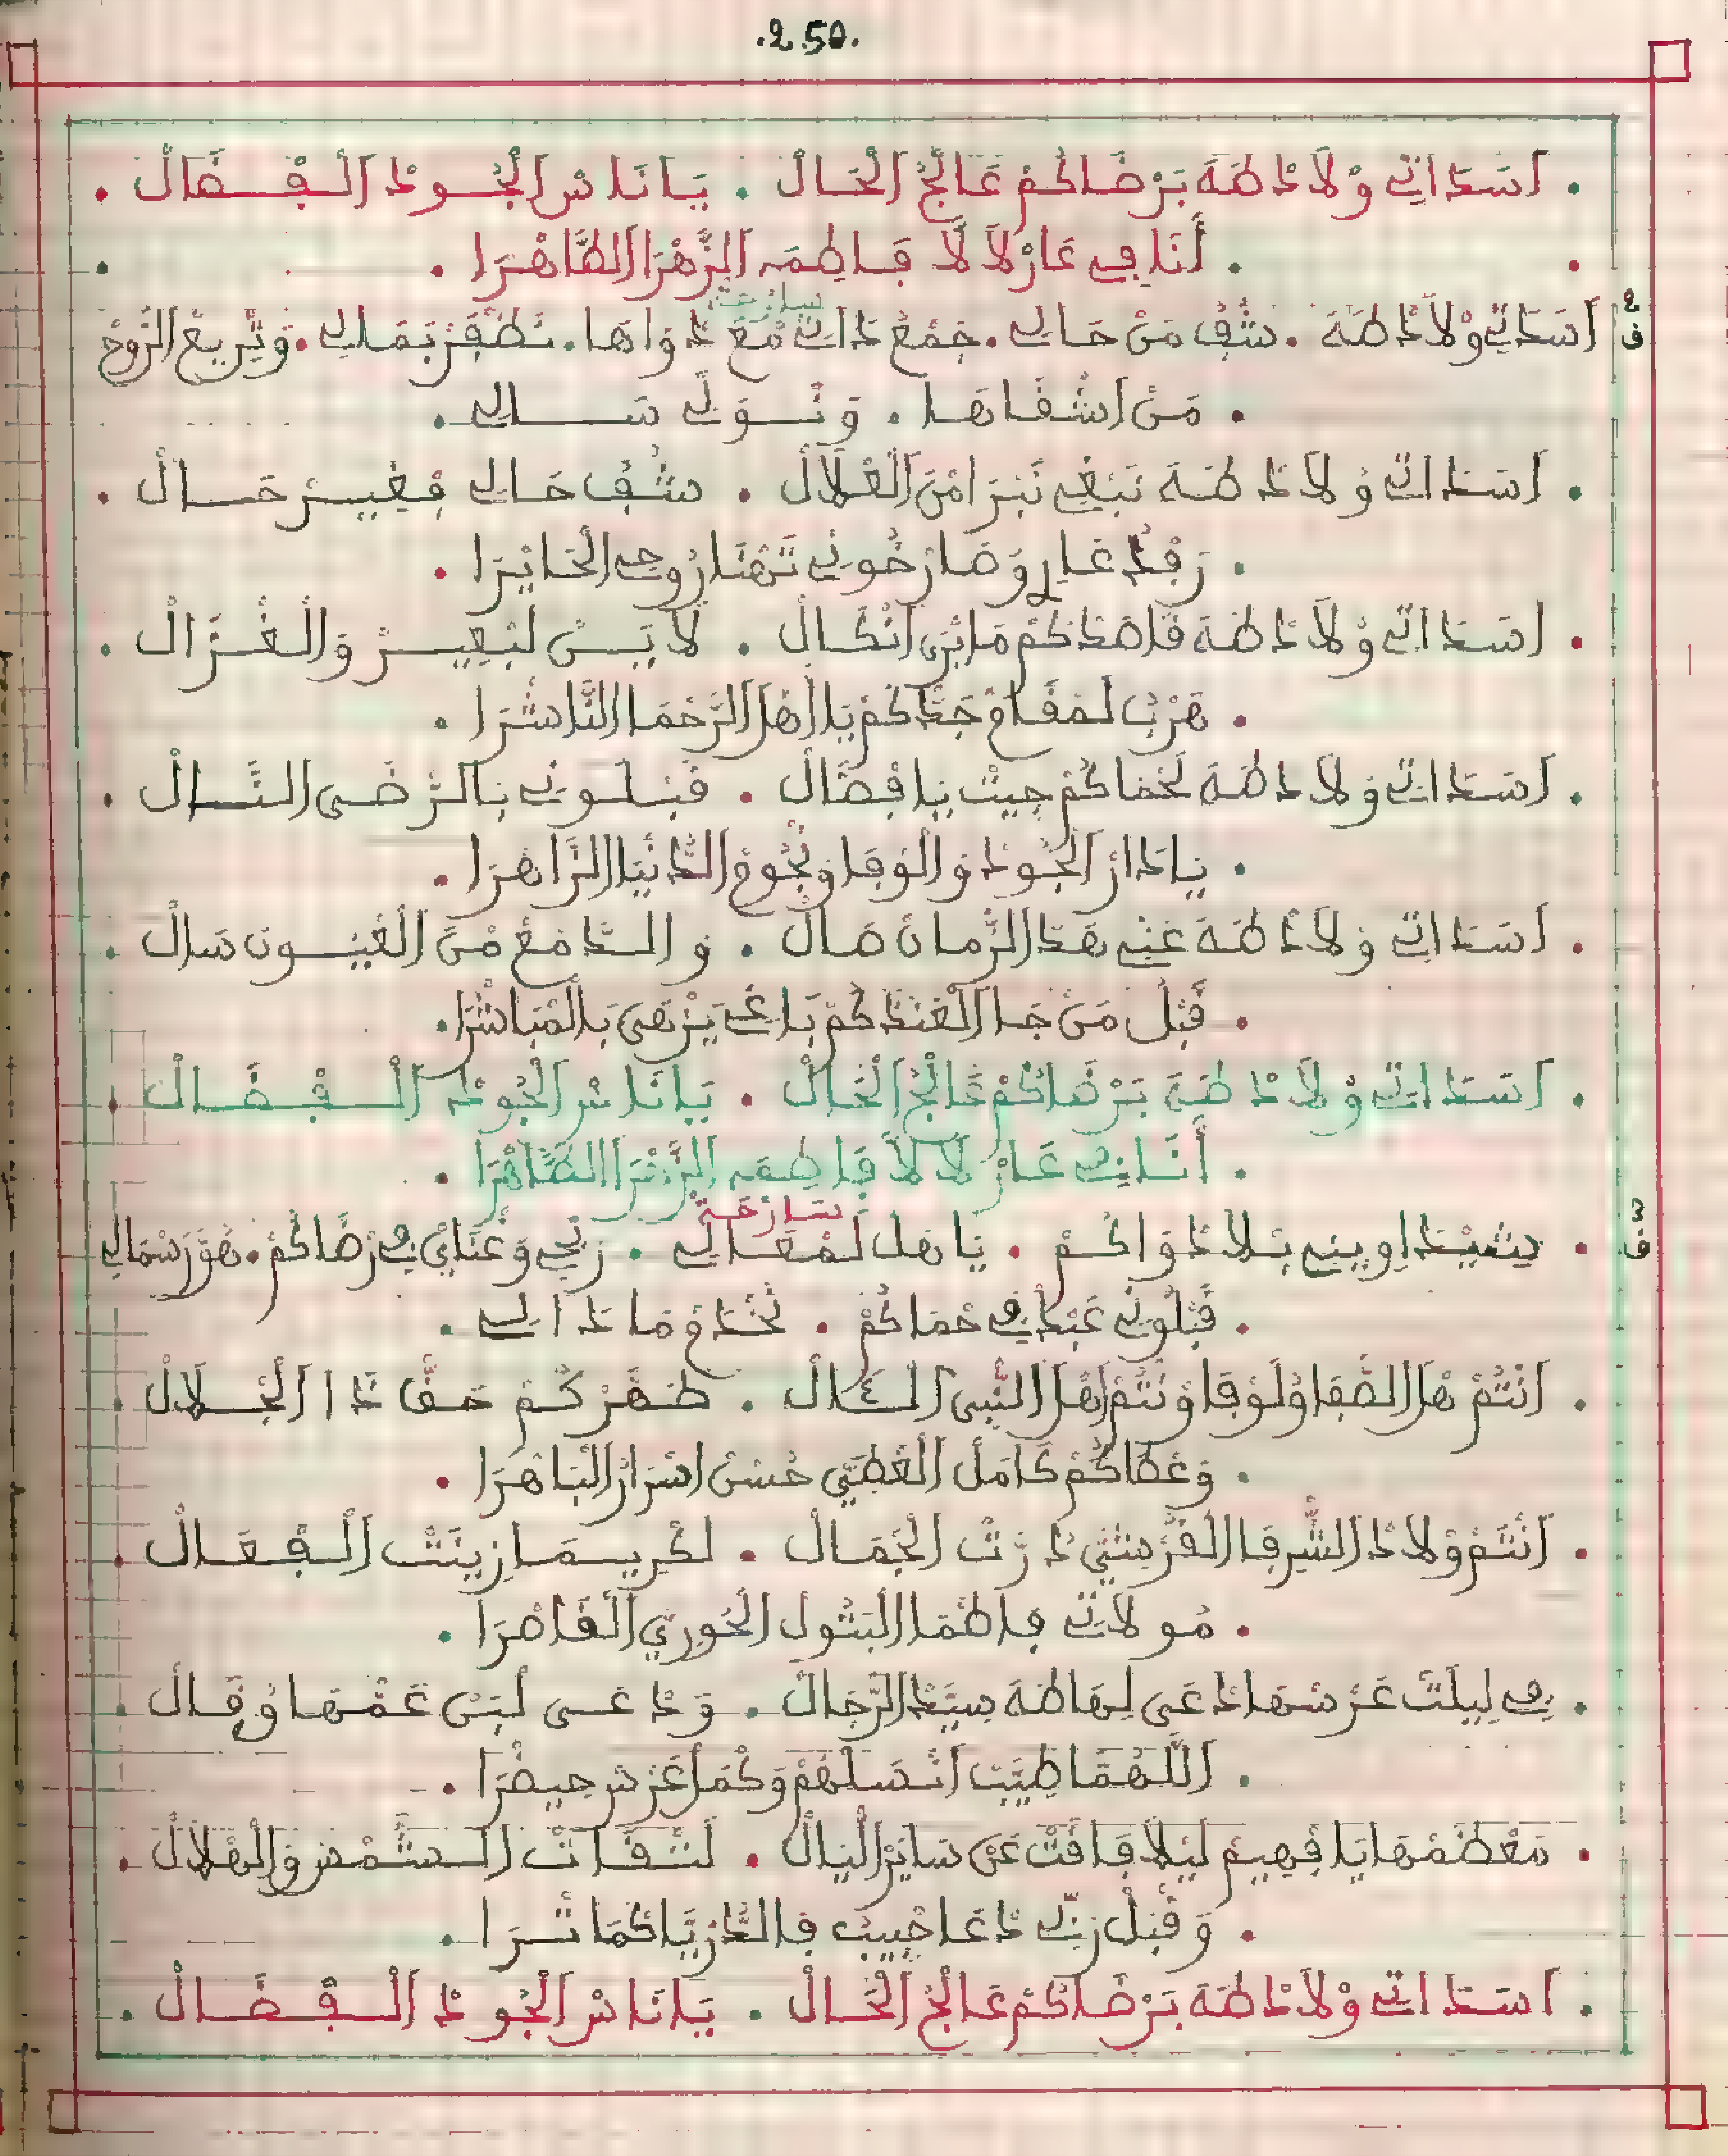 .250.
. اَسَدَاتِي وْلَادْ طَهَ بَرْضَاكُمْ عَالَجْ الْحَالْ . يَانَاسْ الْجُودْ الْفْضَالْ .
. أَنَا فِي عَارْ لَالَّا فَاطِمَه الزَّهْرَا الطَّاهْرَا .
اَسَدَاتِي وْلَادْ طَهَ . شُفْ مَنْ حَالِي . جَمْعْ دَاتِي مْعَ دْوَاهَا . نَظْفَرْ بَمَالِي . وَتْرِيعْ الرُّوحْ
سارحة
. مَنْ اشْفَاهَا . وَنْوَلِّي سَالِي .
. اَسَدَاتِي وْلَادْ طَهَ نَبْغِي نَبْرَا مْنَ الْعْلَالْ . شُفْ حَالِي فْغِيرْ حَالْ .
. رَفْدْ عَارِي وَصَارْخُونِي تَهْنَا رُوحِي الْحَايْرَا .
. اَسَدَاتِي وْلَادْ طَهَ قَاصْدْكُمْ مَا بْنَ انْكَالْ . لَا يَسْ لَبْعِيرْ وَالْغْزَالْ .
. هَرْبْ لَمْقَامْ جَدّكُمْ يَا اهْلْ الرَّحْمَا النَّاشْرَا .
. اَسَدَاتِي وْلَادْ طَهَ لَحْمَاكُمْ جِيتْ يَا فْضَالْ . قَبْلُونِي بِالرّْضَى النَّالْ .
. يَادَارْ الْجُودْ وَالْوْفَا وَنْجُومْ الدَّنْيَا الزَّاهْرَا .
. اَسَدَاتِي وْلَادْ طَهَ عْنِي هَدَ الزّْمَانْ صَالْ . وَالدَّامْعْ مْنَ الْعْيُونْ سَالْ .
. قْبَلْ مَنْ جَا الْعَنْدْكُمْ بَاغِي يَزْهَى بَالْمْبَاشْرَا .
. اَسَدَاتِي وْلَادْ طَهَ بَرْضَاكُمْ عَالَجْ الْحَالْ . يَانَاسْ الْجُودْ الْفْضَالْ .
. أَنَا فِي عَارْ لَالَّا فَاطِمَه الزَّهْرَا الطَّاهْرَا .
سَارْحَة
. شَيْدَا وِينِي بَلَا دْوَاكُمْ . يَا هَلْ لَمْعَالِي . رَبْحِي وَغْنَايْ فِي رْضَاكُمْ . هُوَ رَسْمَالِي
. قَبْلُونِي عَبْدْ فِي حْمَاكُمْ . نَخْدَمْ مَا دَالِي .
. اَنْتُمْ هَلْ الصّْفَا وُلَوْفَا وَنْتُمْ اهْلْ النّْبِي الْكْمَالْ . طَهَّرْكُمْ حَقّ دَا الْجْلَالْ .
. وَعْطَاكُمْ كَامَلْ الْعْطِيّ حُسْنْ اسْرَارْ الْبَاهْرَا .
. اَنْتُمْ وْلَادْ الشّْرِفَا الْقُرْشِيّ دُرّتْ الْجْمَالْ . لَكْرِيمَا زِينَتْ الْفْعَالْ .
. مُولَاتِي فَاطْمَا الْبَتُولْ الْحُورِيّ الْقَاصْرَا .
. فِي لِيلَتْ عَرْسْهَا دْعَى لِهَا طَهَ سِيَّدْ الرّْجَالْ . وَدْعَى لَبْنْ عَمّْهَا وْقَالْ .
. اللَّهُمَّا طِيَّبْ انْسَلْهُمْ وَكْمَلْ عَزْ شَرْ حِيضْرَا .
. مَعْظَمْهَا يَا فْهِيمْ لَيْلَا فَاقْتْ عَنْ سَايَرْ اللّْيَالْ . لَتْقَاتْ الشَّمْسْ وَالْهْلَالْ .
. وَقْبَلْ رَبِّي دْعَا حْبِيبْ فَالدّْرِيَّا كَمَا تْرَا .
. اَسَدَاتِي وْلَادْ طَهَ بَرْضَاكُمْ عَالَجْ الْحَالْ . يَانَاسْ الْجُودْ الْفْضَالْ .